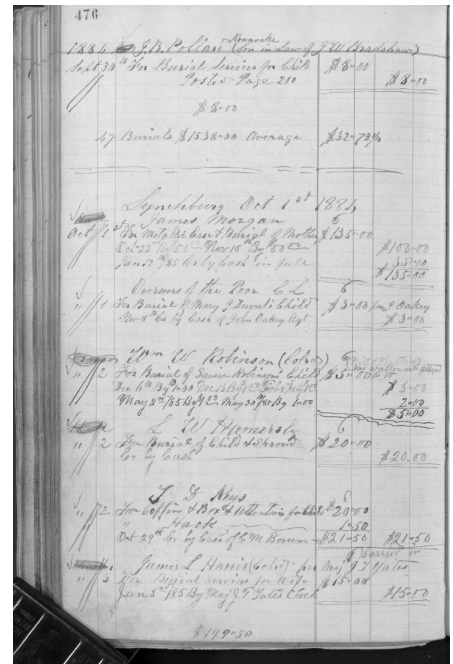 476
1884 J. B. Pollard Roanoke (Son in Law of J W Bradshaw)
Sept 30th For Burial Services for Child $8-00
Posted Page 250 $8-00
$8-00
47 Burials $1538-00 Average $32-72
Lynchburg Oct 1st 1884
James Morgan 6
Oct 1st For Metalic Case & Burial of Mother $135-00
Oct 22nd By 50 Nov 15th By 50 $100-00
Jan 12th /85 Co by Cash in full 35-00
$135-00
Overseers of the Poor C L 6
" 1 For Burial of Mary J Duvals Child $3-00 J Oakey
Nov 8th Co by Cash of John Oakey Agt $3-00
Wm W Robinson (Col) 6
" 2 For Burial of Robinsons Child $5-00
Dec 15 By $3-00
May 2nd /85 By May 30th /85 By 1-00 2-00
$5-00
L W Hamersly 6
" 2 For Burial of Child & Shroud $20-00
Co by Cash $20-00
" 2 For Coffin & Box & Attention for $20-00
" Hack 1-50
Oct 29th Co by Cash of C M $21-50 $21-50
James L Harris (Col) for Maj J T Yates
" 3 For Burial Service for Wife $15-00
Jan 3rd /85 By Maj J T Yates Check $15-00
$199-50